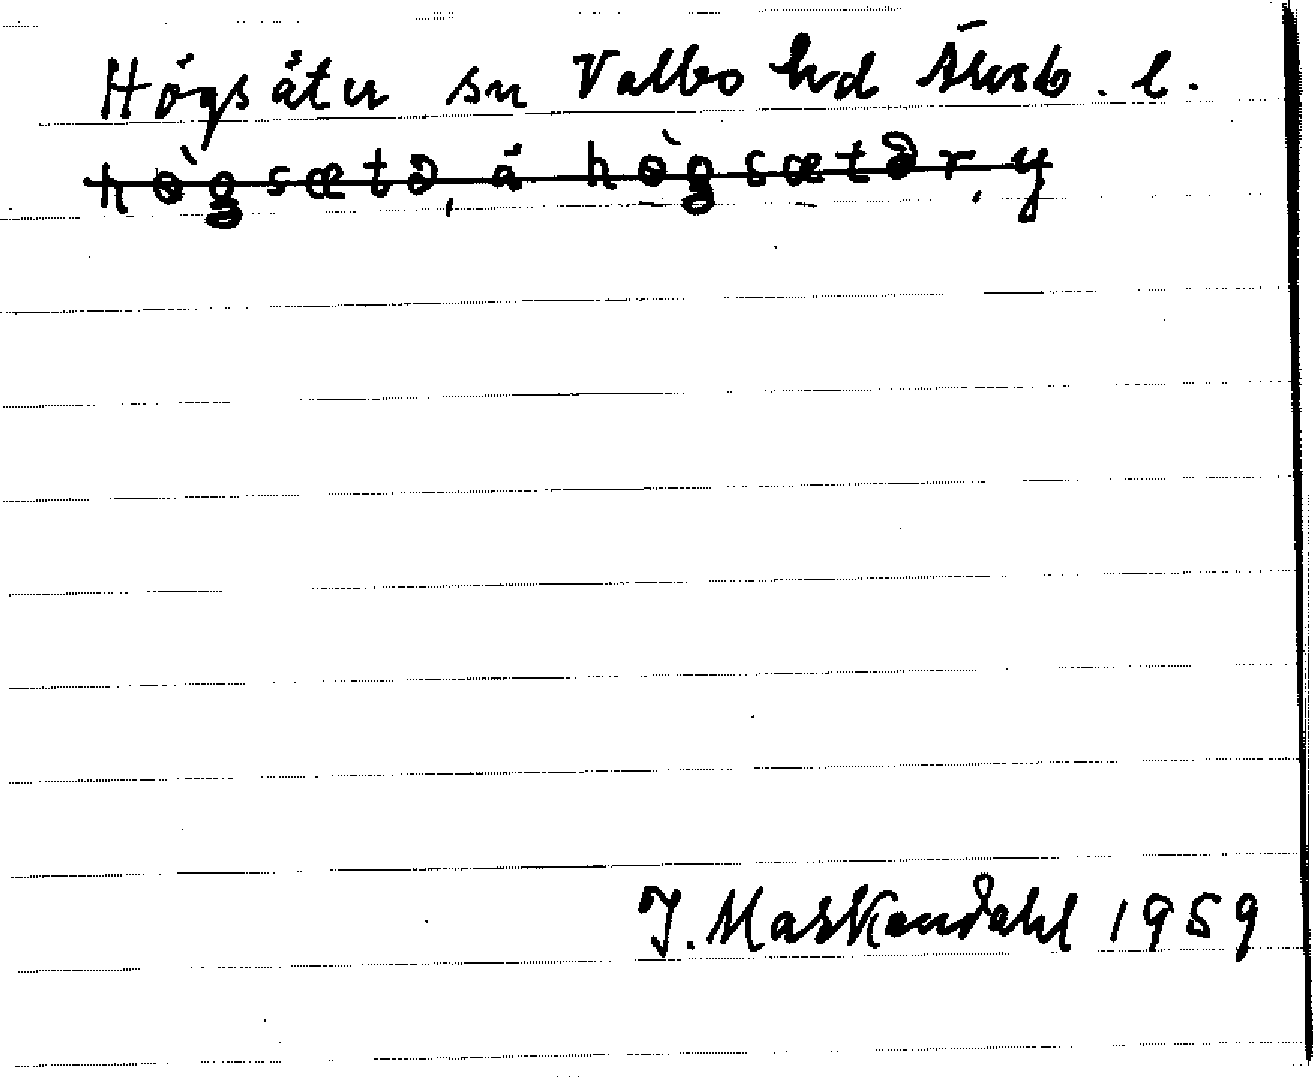 Högsäter sn Valbo hd Älvsb. l.
hø̀gsætə, å hø̀gsætər, y
J. Maskendahl 1959